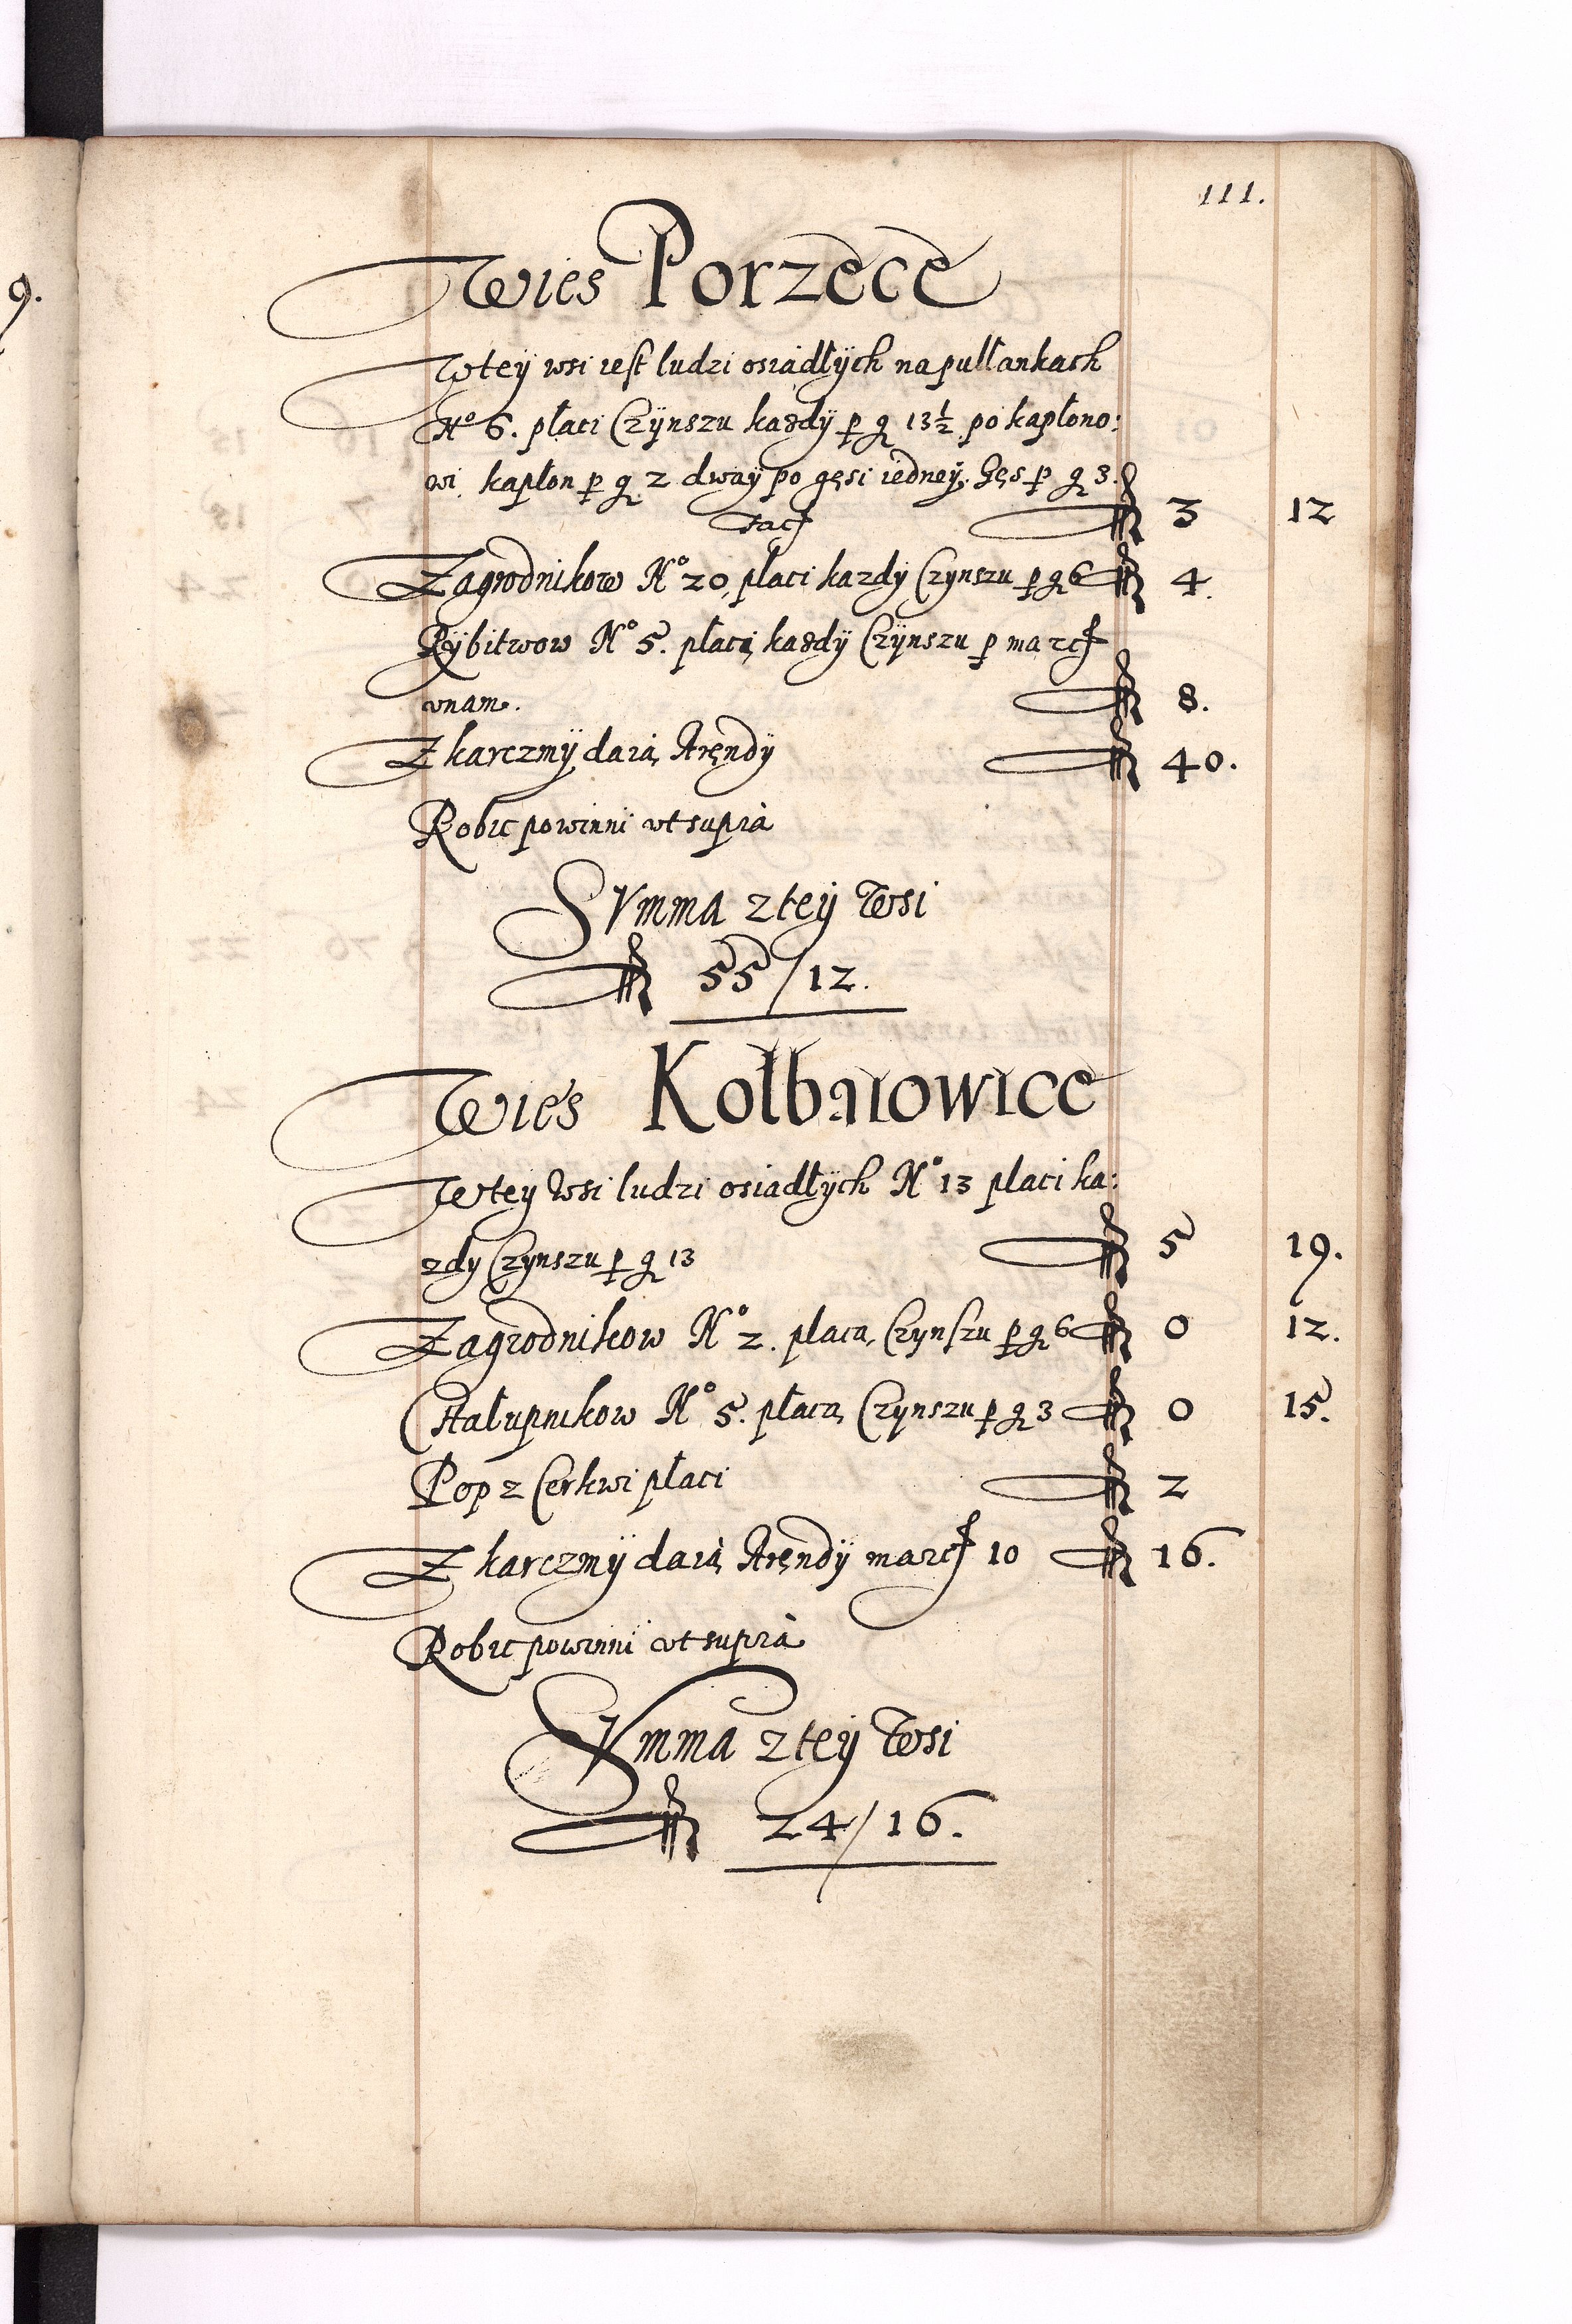 111.
Wies Porzece
W tey wsi iest ludzi osiadłÿch na pułłankach
No 6. płaci Czÿnszu kazdÿ p g 13½ po kapłono:
wi. kapłon p g 2 dway po gęsi iedneÿ. Gęs p g 3.
facj fl 3 12
Zagrodnikow No 20, płaci kazdÿ Czynszu p g 6 fl 4.
Rÿbitwow No 5. płacą kazdÿ Czÿnszu p marcj
vnam. fl 8.
Z karczmÿ daią Aręndÿ fl 40.
Robic powinni vt supra
SVmma z teÿ Wsi
fl 55/12.
Wies Kołbaiowice
W tey Wsi ludzi osiadłÿch No 13 płaci ka:
zdy Czynszu p g 13 fl 5 19.
Zagrodnikow No 2. płaca Czynszu p g 6 fl 0 12.
Chałupnikow No 5. płacą Czynszu p g 3 fl 0 15.
Pop z Cerkwi płaci fl 2
Z karczmÿ daią Aręndÿ marcj 10 fl 16.
Robic powinni vt supra
SVmma z teÿ Wsi
fl 24/16.
9.